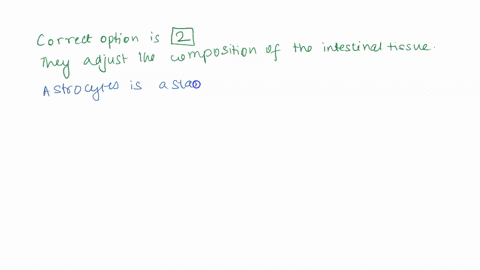 Correct option is 2
They adjust the composition of the intestinal tissue.
Astrocytes is a sta